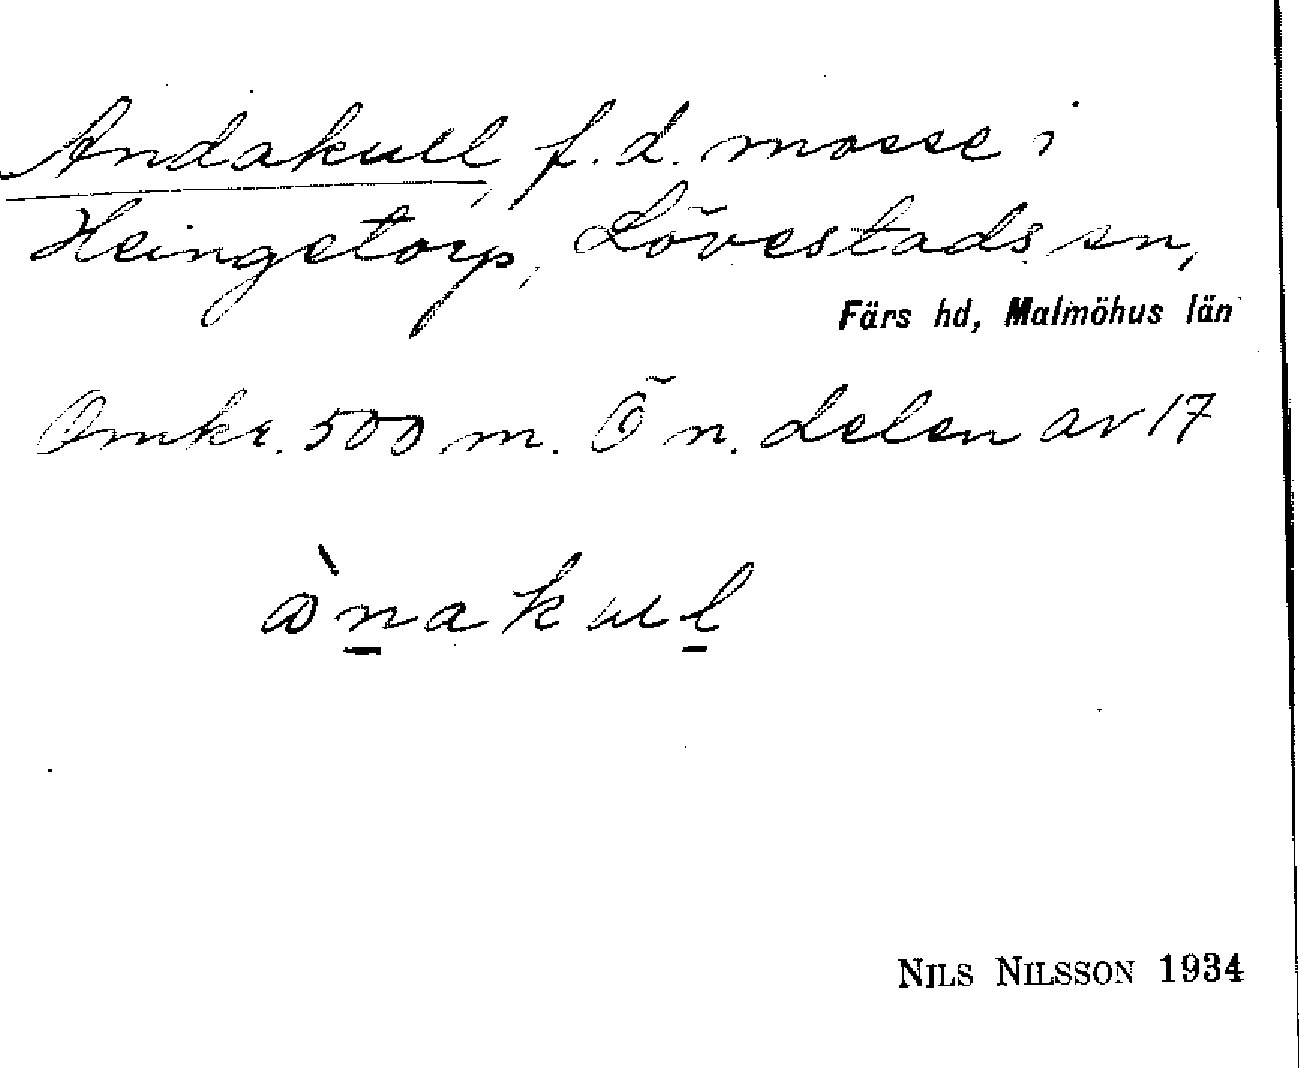 Andakull, f. d. mosse i
Heingetorp, Lövestads sn,
Färs hd, Malmöhus län
Omkr. 500 m. Ö n. delen av 17
ànakul
NILS NILSSON 1934